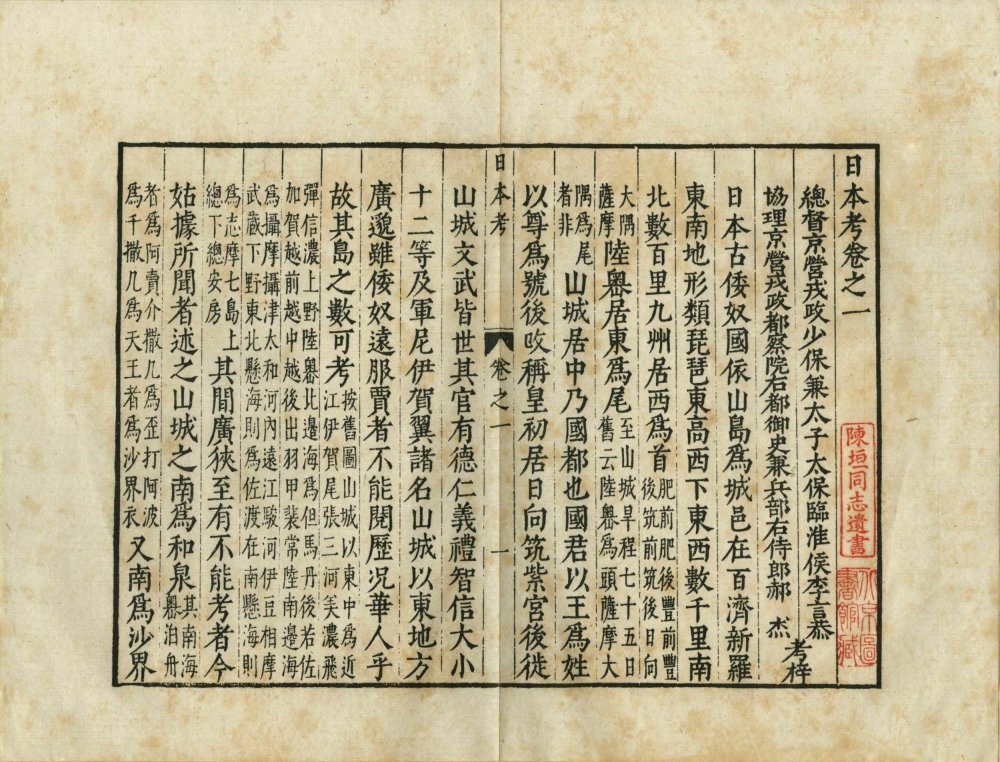 日本考卷之一
總督京營戎政少保兼太子太保臨淮侯李言恭
協理京營戎政都察院右都御史兼兵部右侍郎郝 杰
考梓
日本古倭奴國依山島爲城邑在百濟新羅
東南地形類琵琶東高西下東西數千里南
北數百里九州居西爲首肥前肥後豐前豐後筑前筑後日向
大隅薩摩陸奧居東爲尾至山城旱程七十五日舊云陸奧爲頭薩摩大
隅爲尾者非山城居中乃國都也國君以王爲姓
以尊爲號後攺稱皇初居日向筑紫宮後徙
日本考 卷之一 一
山城文武皆世其官有德仁義禮智信大小
十二等及軍尼伊賀翼諸名山城以東地方
廣邈雖倭奴遠服賈者不能閱歷况華人乎
故其島之數可考按舊圖山城以東中爲近江伊賀尾張三河美濃飛
彈信濃上野陸奧北邊海爲但馬丹後若佐加賀越前越中越後出羽甲裴常陸南邊海
爲攝摩攝津太和河內遠江駿河伊豆相摩武藏下野東北懸海則爲佐渡在南懸海則
爲志摩七島上總下總安房其間廣狹至有不能考者今
姑據所聞者述之山城之南爲和泉其南海奧泊舟
者爲阿賣介撒几爲歪打阿波爲千撒几爲天王者爲沙界衣又南爲沙界
陳垣同志遺書
北京圖書館藏